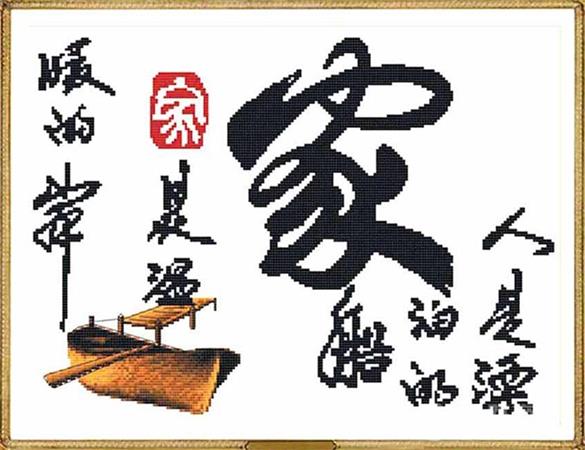 人是漂
泊的
船
家
家是温
暖的岸